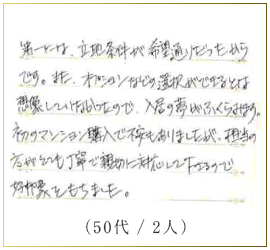 第一には、立地条件が希望通りだったから
です。また、オプションなどの選択ができるとは
想像していなかったので、入居の夢がふくらみます。
初のマンション購入で不安もありましたが、担当の
方がとても丁寧で親切に対応して下さるので
好印象をもちました。
(50代 / 2人)